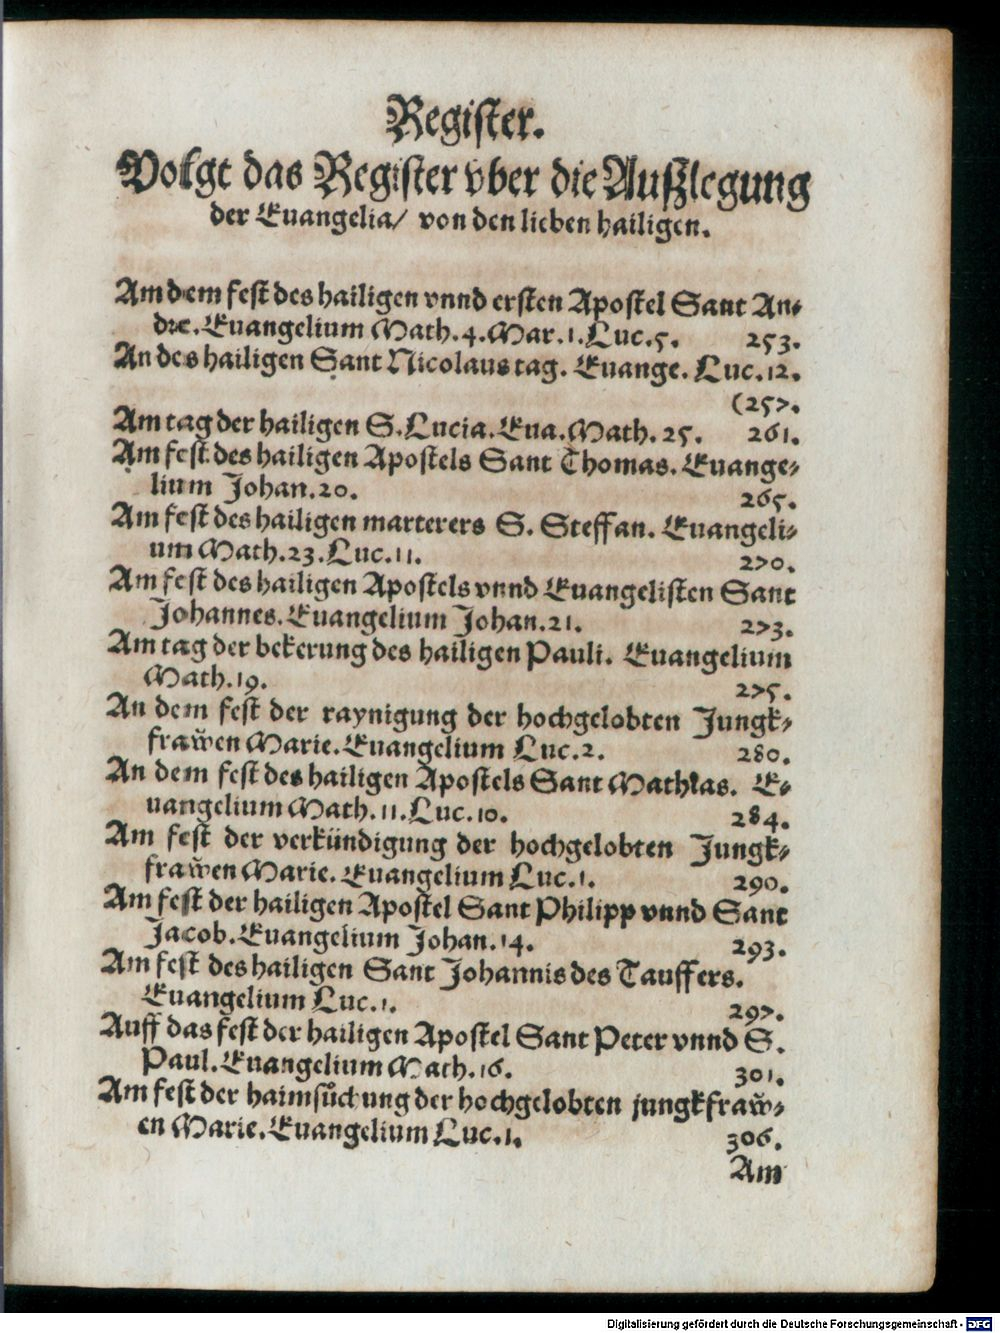 Register.
Volgt das Register vber die Außlegung
der Euangelia/ von den lieben hailigen.
Am dem fest des hailigen vnnd ersten Apostel Sant An-
dre. Euangelium Math. 4. Mar. 1. Luc. 5. 253.
An des hailigen Sant Nicolaus tag. Euange. Luc. 12.
(257.
Am tag der hailigen S. Lucia. Eua. Math. 25. 261.
Am fest des hailigen Apostels Sant Thomas. Euange-
lium Johan. 20. 265.
Am fest des hailigen marterers S. Steffan. Euangeli-
um Math. 23. Luc. 11. 270.
Am fest des hailigen Apostels vnnd Euangelisten Sant
Johannes. Euangelium Johan. 21. 273.
Am tag der bekerung des hailigen Pauli. Euangelium
Math. 19. 275.
An dem fest der raynigung der hochgelobten Jungk-
frawen Marie. Euangelium Luc. 2. 280.
An dem fest des hailigen Apostels Sant Mathias. E-
uangelium Math. 11. Luc. 10. 284.
Am fest der verkündigung der hochgelobten Jungk-
frawen Marie. Euangelium Luc. 1. 290.
Am fest der hailigen Apostel Sant Philipp vnnd Sant
Jacob. Euangelium Johan. 14. 293.
Am fest des hailigen Sant Johannis des Tauffers.
Euangelium Luc. 1. 297.
Auff das fest der hailigen Apostel Sant Peter vnnd S.
Paul. Euangelium Math. 16. 301.
Am fest der haimsůchung der hochgelobten jungkfraw-
en Marie. Euangelium Luc. 1. 306.
Am
Digitalisierung gefördert durch die Deutsche Forschungsgemeinschaft - DFG